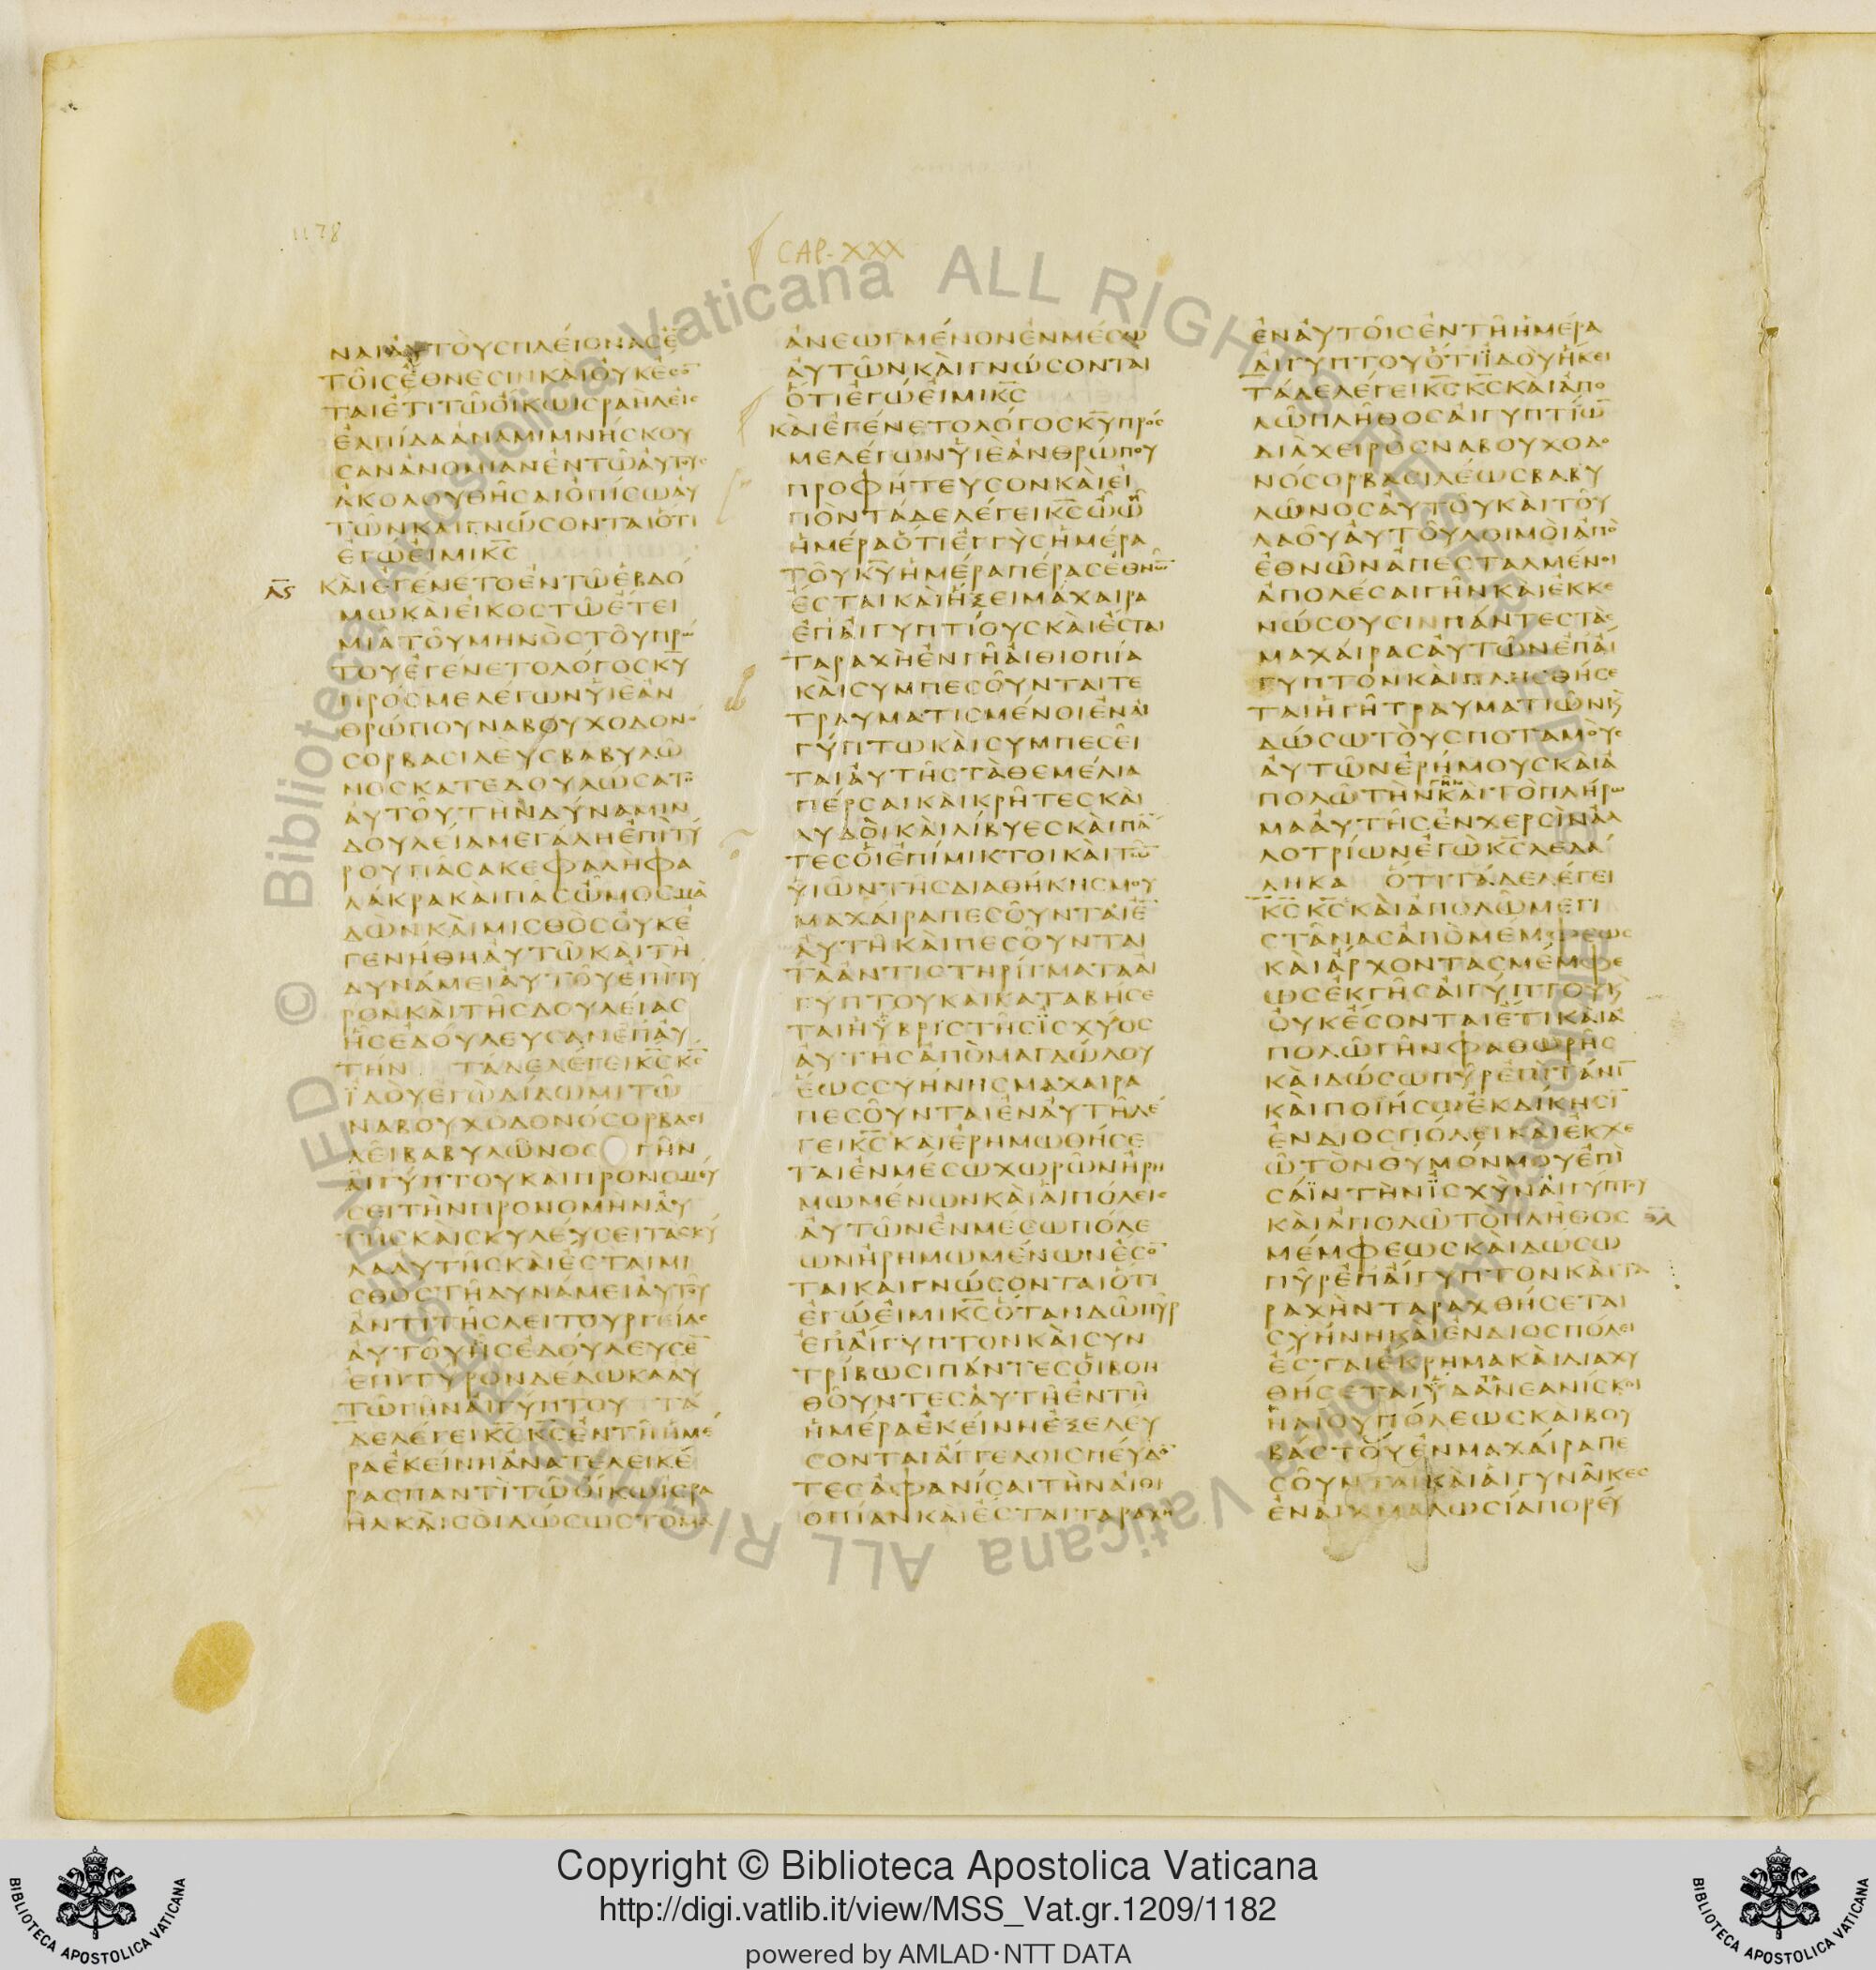 1178
CAP. XXX
ΝΑΙΑΥΤΟΥΣΠΛΕΙΟΝΑΣΕ̅
ΤΟΙΣΕΘΝΕΣΙΝΚΑΙΟΥΚΕΣΟ̅
ΤΑΙΕΤΙΤΩΟΙΚΩΙΣΡΑΗΛΕΙΣ
ΕΛΠΙΔΑΑΝΑΜΙΜΝΗΣΚΟΥ
ΣΑΝΑΝΟΜΙΑΝΕΝΤΩΑΥΤΟΥΣ
ΑΚΟΛΟΥΘΗΣΑΙΟΠΙΣΩΑΥ
ΤΩΝΚΑΙΓΝΩΣΟΝΤΑΙΟΤΙ
ΕΓΩΕΙΜΙΚ̅Σ̅
Λ̅Ϛ̅
ΚΑΙΕΓΕΝΕΤΟΕΝΤΩΕΒΔΟ
ΜΩΚΑΙΕΙΚΟΣΤΩΕΤΕΙ
ΜΙΑΤΟΥΜΗΝΟΣΤΟΥΠΡΩ
ΤΟΥΕΓΕΝΕΤΟΛΟΓΟΣΚ̅Υ̅
ΠΡΟΣΜΕΛΕΓΩΝΥΙΕΑΝ
ΘΡΩΠΟΥΝΑΒΟΥΧΟΔΟΝΟ
ΣΟΡΒΑΣΙΛΕΥΣΒΑΒΥΛΩ̅
ΝΟΣΚΑΤΕΔΟΥΛΩΣΑΤΟ
ΑΥΤΟΥΤΗΝΔΥΝΑΜΙΝ
ΔΟΥΛΕΙΑΜΕΓΑΛΗΕΠΙΤΥ
ΡΟΥΠΑΣΑΚΕΦΑΛΗΦΑ
ΛΑΚΡΑΚΑΙΠΑΣΩΜΟΣΜΑ
ΔΩΝΚΑΙΜΙΣΘΟΣΟΥΚΕ
ΓΕΝΗΘΗΑΥΤΩΚΑΙΤΗ
ΔΥΝΑΜΕΙΑΥΤΟΥΕΠΙΤΥ
ΡΟΝΚΑΙΤΗΣΔΟΥΛΕΙΑΣ
ΗΣΕΔΟΥΛΕΥΣΑΝΕΠΑΥ
ΤΗΝ ΤΑΔΕΛΕΓΕΙΚ̅Σ̅Κ̅Σ̅
ΙΔΟΥΕΓΩΔΙΔΩΜΙΤΩ
ΝΑΒΟΥΧΟΔΟΝΟΣΟΡΒΑΣΙ
ΛΕΙΒΑΒΥΛΩΝΟΣ ΓΗΝ
ΑΙΓΥΠΤΟΥΚΑΙΠΡΟΝΟΜΕΥ
ΣΕΙΤΗΝΠΡΟΝΟΜΗΝΑΥ
ΤΗΣΚΑΙΣΚΥΛΕΥΣΕΙΤΑΣΚΥ
ΛΑΑΥΤΗΣΚΑΙΕΣΤΑΙΜΙ
ΣΘΟΣΤΗΔΥΝΑΜΕΙΑΥΤΟΥ
ΑΝΤΙΤΗΣΛΕΙΤΟΥΡΓΕΙΑΣ
ΑΥΤΟΥΗΣΕΔΟΥΛΕΥΣΕ̅
ΕΠΙΤΥΡΟΝΔΕΔΩΚΑΑΥ
ΤΩΓΗΝΑΙΓΥΠΤΟΥ ΤΑ
ΔΕΛΕΓΕΙΚ̅Σ̅Κ̅Σ̅ΕΝΤΗΗΜΕ
ΡΑΕΚΕΙΝΗΑΝΑΤΕΛΕΙΚΕ
ΡΑΣΠΑΝΤΙΤΩΟΙΚΩΙΣΡΑ
ΗΛΚΑΙΣΟΙΔΩΣΩΣΤΟΜΑ
ΑΝΕΩΓΜΕΝΟΝΕΝΜΕΣΩ
ΑΥΤΩΝΚΑΙΓΝΩΣΟΝΤΑΙ
ΟΤΙΕΓΩΕΙΜΙΚ̅Σ̅
ΚΑΙΕΓΕΝΕΤΟΛΟΓΟΣΚ̅Υ̅ΠΡΟΣ
ΜΕΛΕΓΩΝΥΙΕΑΝΘΡΩΠΟΥ
ΠΡΟΦΗΤΕΥΣΟΝΚΑΙΕΙ
ΠΟΝΤΑΔΕΛΕΓΕΙΚ̅Σ̅ΩΩ
ΗΜΕΡΑΟΤΙΕΓΓΥΣΗΜΕΡΑ
ΤΟΥΚ̅Υ̅ΗΜΕΡΑΠΕΡΑΣΕΘΝΩ̅
ΕΣΤΑΙΚΑΙΗΞΕΙΜΑΧΑΙΡΑ
ΕΠΑΙΓΥΠΤΙΟΥΣΚΑΙΕΣΤΑΙ
ΤΑΡΑΧΗΕΝΓΗΑΙΘΙΟΠΙΑ
ΚΑΙΣΥΜΠΕΣΟΥΝΤΑΙΤΕ
ΤΡΑΥΜΑΤΙΣΜΕΝΟΙΕΝΑΙ
ΓΥΠΤΩΚΑΙΣΥΜΠΕΣΕΙ
ΤΑΙΑΥΤΗΣΤΑΘΕΜΕΛΙΑ
ΠΕΡΣΑΙΚΑΙΚΡΗΤΕΣΚΑΙ
ΛΥΔΟΙΚΑΙΛΙΒΥΕΣΚΑΙΠΑ̅
ΤΕΣΟΙΕΠΙΜΙΚΤΟΙΚΑΙΤΩ̅
ΥΙΩΝΤΗΣΔΙΑΘΗΚΗΣΜΟΥ
ΜΑΧΑΙΡΑΠΕΣΟΥΝΤΑΙΕ̅
ΑΥΤΗΚΑΙΠΕΣΟΥΝΤΑΙ
ΤΑΑΝΤΙΣΤΗΡΙΓΜΑΤΑΑΙ
ΓΥΠΤΟΥΚΑΙΚΑΤΑΒΗΣΕ
ΤΑΙΗΥΒΡΙΣΤΗΣΙΣΧΥΟΣ
ΑΥΤΗΣΑΠΟΜΑΓΔΩΛΟΥ
ΕΩΣΣΥΗΝΗΣΜΑΧΑΙΡΑ
ΠΕΣΟΥΝΤΑΙΕΝΑΥΤΗΛΕ
ΓΕΙΚ̅Σ̅ΚΑΙΕΡΗΜΩΘΗΣΕ
ΤΑΙΕΝΜΕΣΩΧΩΡΩΝΗΡΗ
ΜΩΜΕΝΩΝΚΑΙΑΙΠΟΛΕΙΣ
ΑΥΤΩΝΕΝΜΕΣΩΠΟΛΕ
ΩΝΗΡΗΜΩΜΕΝΩΝΕΣΟ̅
ΤΑΙΚΑΙΓΝΩΣΟΝΤΑΙΟΤΙ
ΕΓΩΕΙΜΙΚ̅Σ̅ΟΤΑΝΔΩΠΥΡ
ΕΠΑΙΓΥΠΤΟΝΚΑΙΣΥΝ
ΤΡΙΒΩΣΙΠΑΝΤΕΣΟΙΒΟΗ
ΘΟΥΝΤΕΣΑΥΤΗΕΝΤΗ
ΗΜΕΡΑΕΚΕΙΝΗΕΞΕΛΕΥ
ΣΟΝΤΑΙΑΓΓΕΛΟΙΣΠΕΥΔΟ̅
ΤΕΣΑΦΑΝΙΣΑΙΤΗΝΑΙΘΙ
ΟΠΙΑΝΚΑΙΕΣΤΑΙΤΑΡΑΧΗ
ΕΝΑΥΤΟΙΣΕΝΤΗΗΜΕΡΑ
ΑΙΓΥΠΤΟΥΟΤΙΙΔΟΥΗΚΕΙ
ΤΑΔΕΛΕΓΕΙΚ̅Σ̅Κ̅Σ̅ΚΑΙΑΠΟ
ΛΩΠΛΗΘΟΣΑΙΓΥΠΤΙΩ̅
ΔΙΑΧΕΙΡΟΣΝΑΒΟΥΧΟΔΟ
ΝΟΣΟΡΒΑΣΙΛΕΩΣΒΑΒΥ
ΛΩΝΟΣΑΥΤΟΥΚΑΙΤΟΥ
ΛΑΟΥΑΥΤΟΥΛΟΙΜΟΙΑΠΟ
ΕΘΝΩΝΑΠΕΣΤΑΛΜΕΝΟΙ
ΑΠΟΛΕΣΑΙΓΗΝΚΑΙΕΚΚΕ
ΝΩΣΟΥΣΙΝΠΑΝΤΕΣΤΑΣ
ΜΑΧΑΙΡΑΣΑΥΤΩΝΕΠΑΙ
ΓΥΠΤΟΝΚΑΙΠΛΗΣΘΗΣΕ
ΤΑΙΗΓΗΤΡΑΥΜΑΤΙΩΝΚ̀
ΔΩΣΩΤΟΥΣΠΟΤΑΜΟΥΣ
ΑΥΤΩΝΕΡΗΜΟΥΣΚΑΙΑ
ΠΟΛΩΤΗΝΓΗΝΚΑΙΤΟΠΛΗΡΩ
ΜΑΑΥΤΗΣΕΝΧΕΡΣΙΝΑΛ
ΛΟΤΡΙΩΝΕΓΩΚ̅Σ̅ΛΕΛΑ
ΛΗΚΑ ΟΤΙΤΑΔΕΛΕΓΕΙ
Κ̅Σ̅Κ̅Σ̅ΚΑΙΑΠΟΛΩΜΕΓΙ
ΣΤΑΝΑΣΑΠΟΜΕΜΦΕΩΣ
ΚΑΙΑΡΧΟΝΤΑΣΜΕΜΦΕ
ΩΣΕΚΓΗΣΑΙΓΥΠΤΟΥΚ̀
ΟΥΚΕΣΟΝΤΑΙΕΤΙΚΑΙΑ
ΠΟΛΩΓΗΝΦΑΘΩΡΗΣ
ΚΑΙΔΩΣΩΠΥΡΕΠΙΤΑΝΙ̅
ΚΑΙΠΟΙΗΣΩΕΚΔΙΚΗΣΙ̅
ΕΝΔΙΟΣΠΟΛΕΙΚΑΙΕΚΧΕ
ΩΤΟΝΘΥΜΟΝΜΟΥΕΠΙ
ΣΑΙΝΤΗΝΙΣΧΥΝΑΙΓΥΠΤΟΥ
ΚΑΙΑΠΟΛΩΤΟΠΛΗΘΟΣ
ΜΕΜΦΕΩΣΚΑΙΔΩΣΩ
ΠΥΡΕΠΑΙΓΥΠΤΟΝΚΑΙΤΑ
ΡΑΧΗΝΤΑΡΑΧΘΗΣΕΤΑΙ
ΣΥΗΝΗΚΑΙΕΝΔΙΟΣΠΟΛΕΙ
ΕΣΤΑΙΕΚΡΗΓΜΑΚΑΙΔΙΑΧΥ
ΘΗΣΕΤΑΙΥΔΑΤΑΝΕΑΝΙΣΚΟΙ
ΗΛΙΟΥΠΟΛΕΩΣΚΑΙΒΟΥ
ΒΑΣΤΟΥΕΝΜΑΧΑΙΡΑΠΕ
ΣΟΥΝΤΑΙΚΑΙΑΙΓΥΝΑΙΚΕΣ
ΕΝΑΙΧΜΑΛΩΣΙΑΠΟΡΕΥ
© Biblioteca Apostolica Vaticana ALL RIGHTS RESERVED
© Biblioteca Apostolica Vaticana ALL RIGHTS RESERVED
Copyright © Biblioteca Apostolica Vaticana
http://digi.vatlib.it/view/MSS_Vat.gr.1209/1182
powered by AMLAD·NTT DATA
BIBLIOTECA APOSTOLICA VATICANA
BIBLIOTECA APOSTOLICA VATICANA